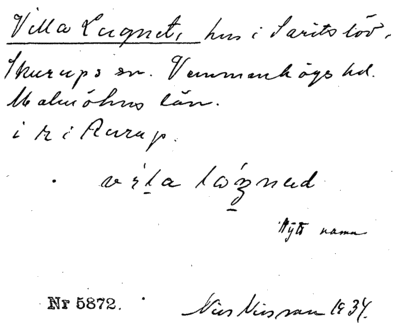 Villa Lugnet, hus i Saritslöv,
Skurups sn. Vemmenhögs hd.
Malmöhus län.
i
víla lógnad
Nytt namn
Nr 5872.
Nils Nilsson 1934.